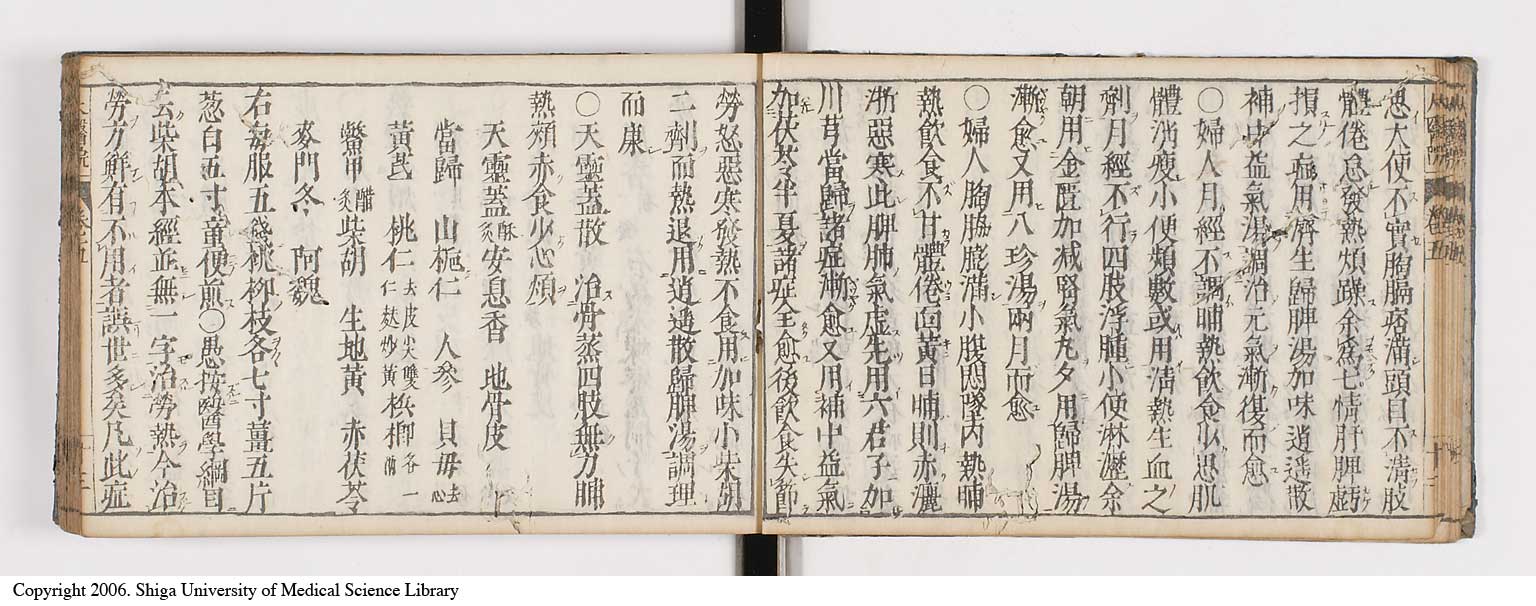 思大便不實胸膈痞滿頭目不清肢
體倦怠發熱煩躁余爲七情肝脾虧
損之症用濟生歸脾湯加味逍遥散
補中益氣湯調治元氣漸復而愈
○婦人月經不調晡熱飲食少思肌
體消瘦小便頻數或用清熱生血之
劑月經不行四肢浮腫小便淋瀝余
朝用金匱加減腎氣丸夕用歸脾湯
漸愈又用八珍湯兩月而愈
○婦人胸脇膨滿小腹悶墜內熱晡
熱飲食不甘體倦面黃日晡則赤灑
淅惡寒此脾肺氣虛先用六君子加
川芎當歸諸症漸愈又用補中益氣
加茯苓半夏諸症全愈後飲食失節
勞怒惡寒發熱不食用加味小柴胡
二劑而熱退用逍遥散歸脾湯調理
而康
○天靈蓋散 治骨蒸四肢無力晡
熱頰赤食少心煩
天靈蓋酥炙安息香 地骨皮
當歸 山梔仁 人參 貝毋去心
黃芪 桃仁去皮尖雙仁麸炒黃檳榔各一兩
鱉甲醋炙柴胡 生地黃 赤茯苓
麥門冬 阿魏
右每服五錢桃柳枝各七寸薑五片
葱白五寸童便煎○愚按醫學綱目
云柴胡本經並無一字治勞熱今治
勞方鮮有不用者誤世多矣凡此症
Copyright 2006. Shiga University of Medical Science Library